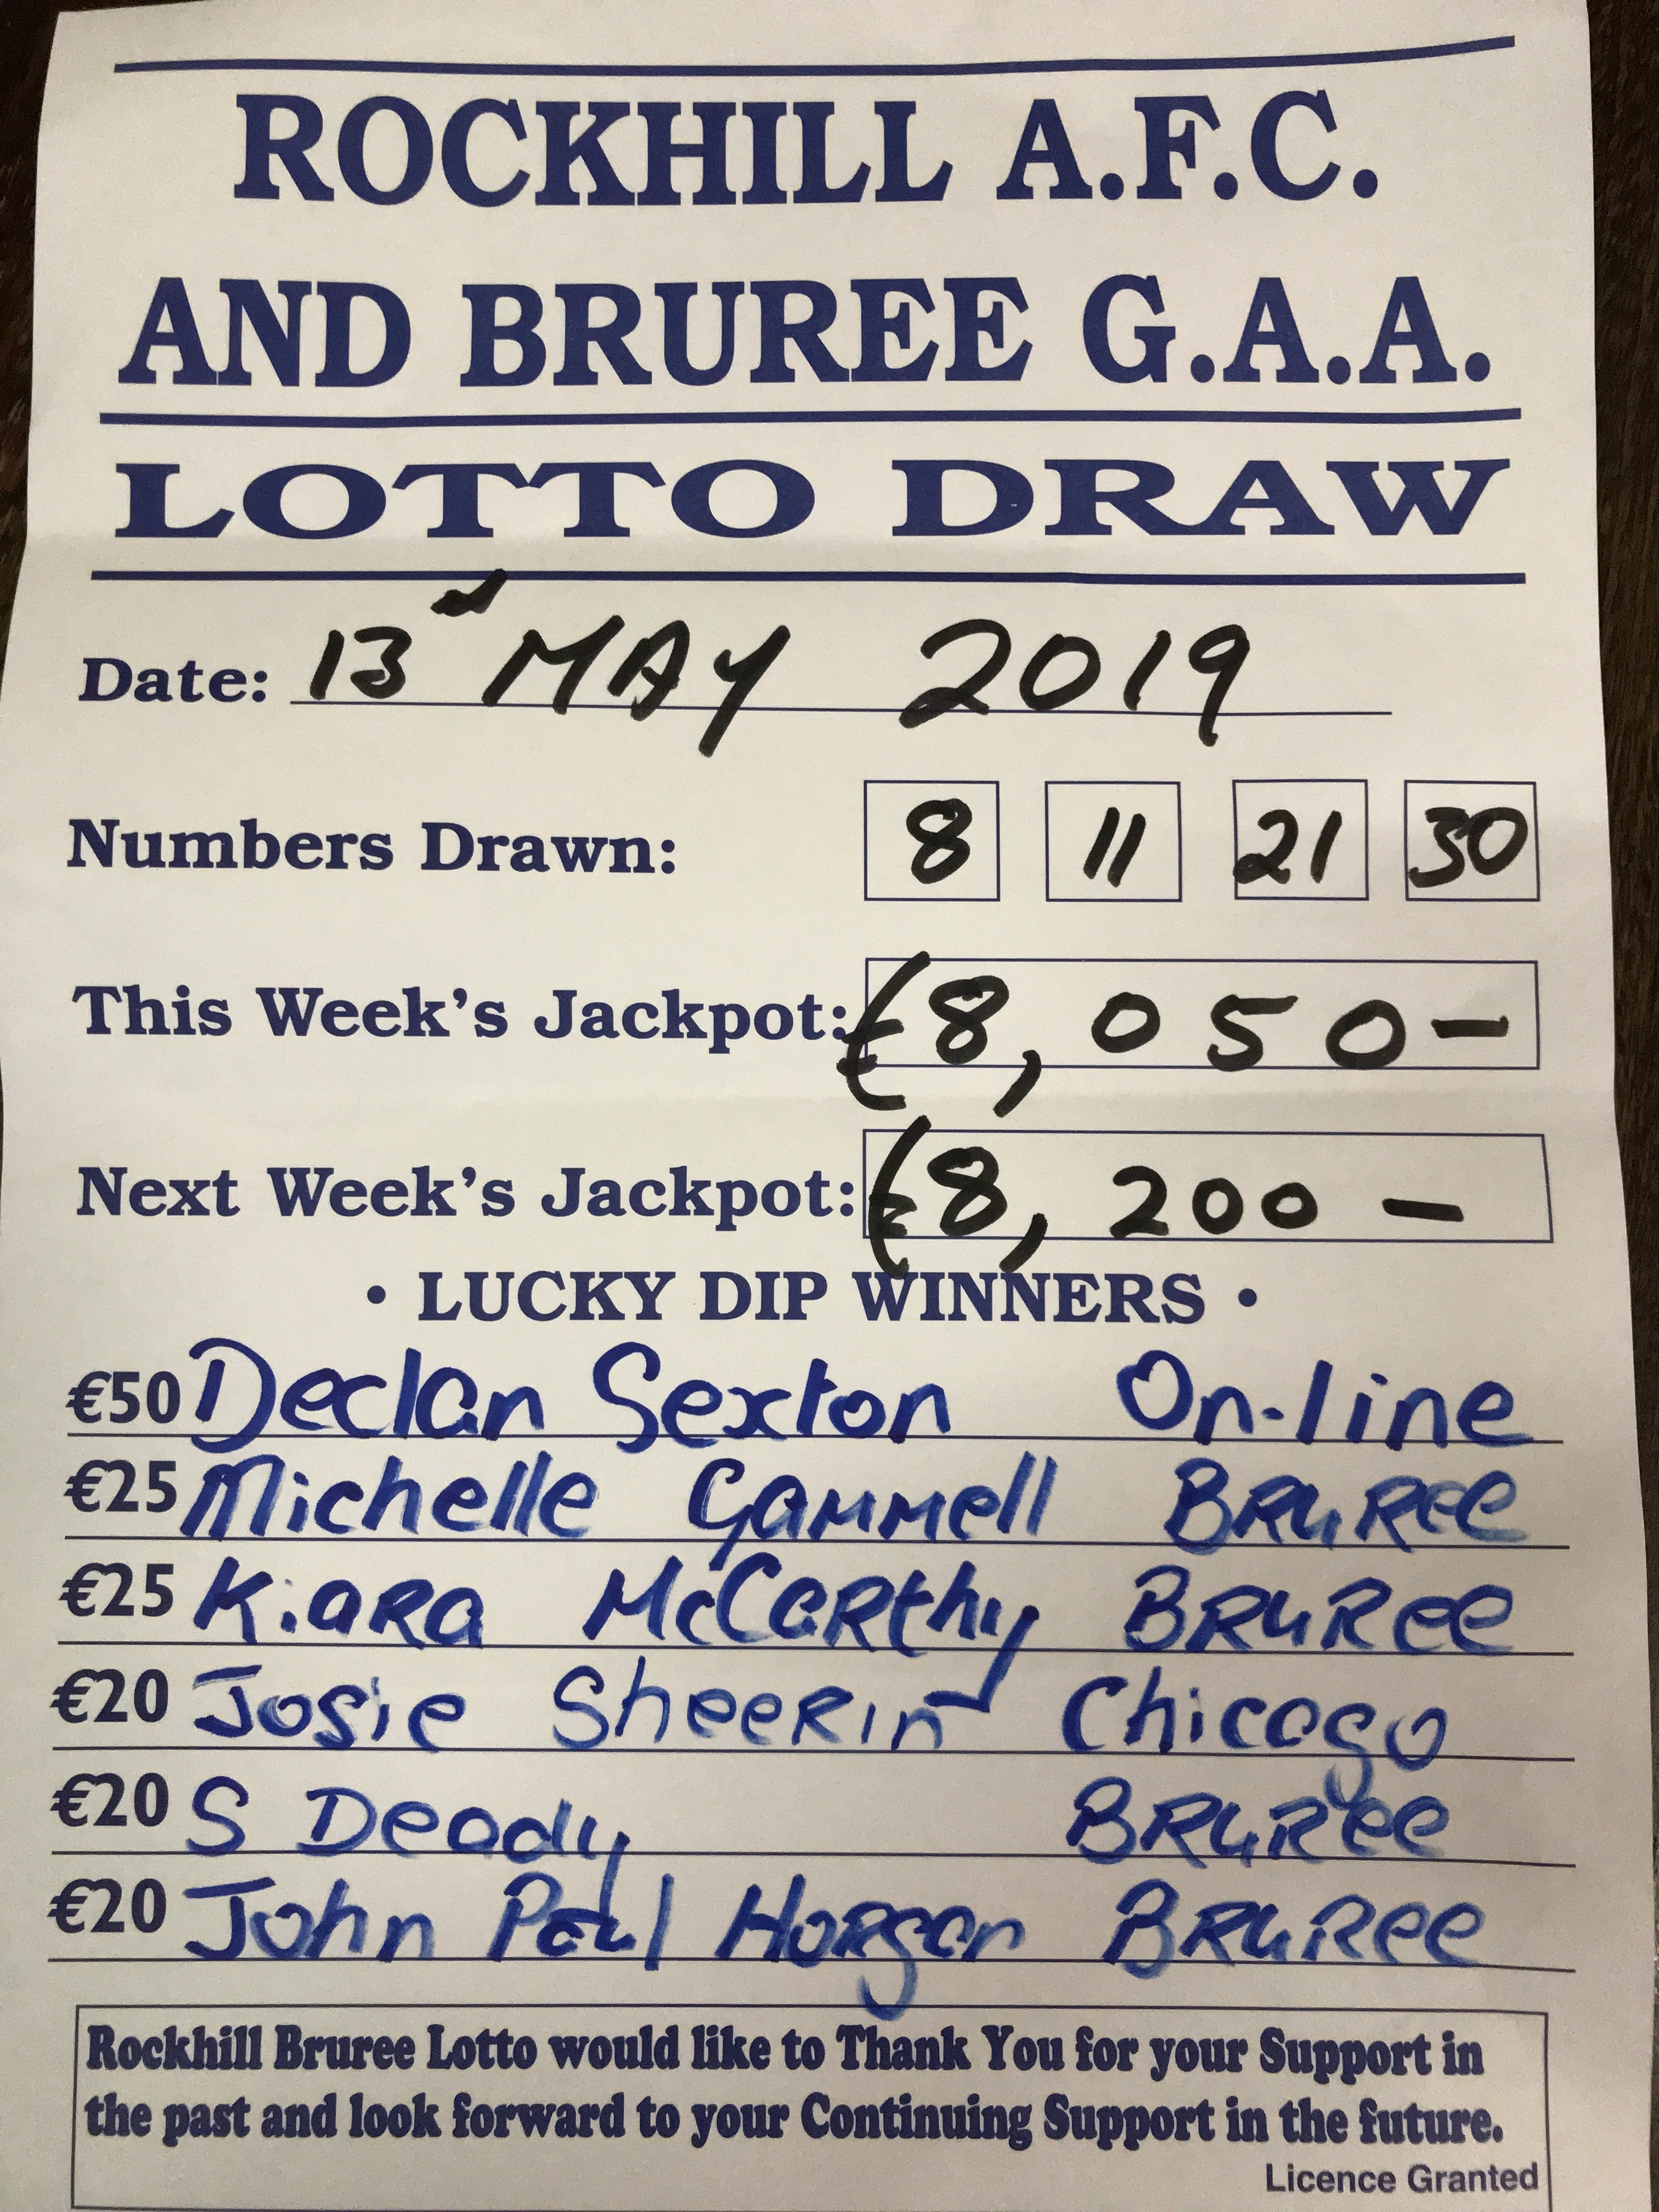 ROCKHILL A.F.C.
AND BRUREE G.A.A.
LOTTO DRAW
Date: 13th MAY 2019
Numbers Drawn: 8 11 21 30
This Week's Jackpot: €8,050-
Next Week's Jackpot: €8,200-
• LUCKY DIP WINNERS •
€50 Declan Sexton On-line
€25 Michelle Gammell BRuRee
€25 KiaRa McCaRthy BRuRee
€20 Josie SheeRin Chicago
€20 S Deady BRuRee
€20 John Paul HoRgan BRuRee
Rockhill Bruree Lotto would like to Thank You for your Support in
the past and look forward to your Continuing Support in the future.
Licence Granted